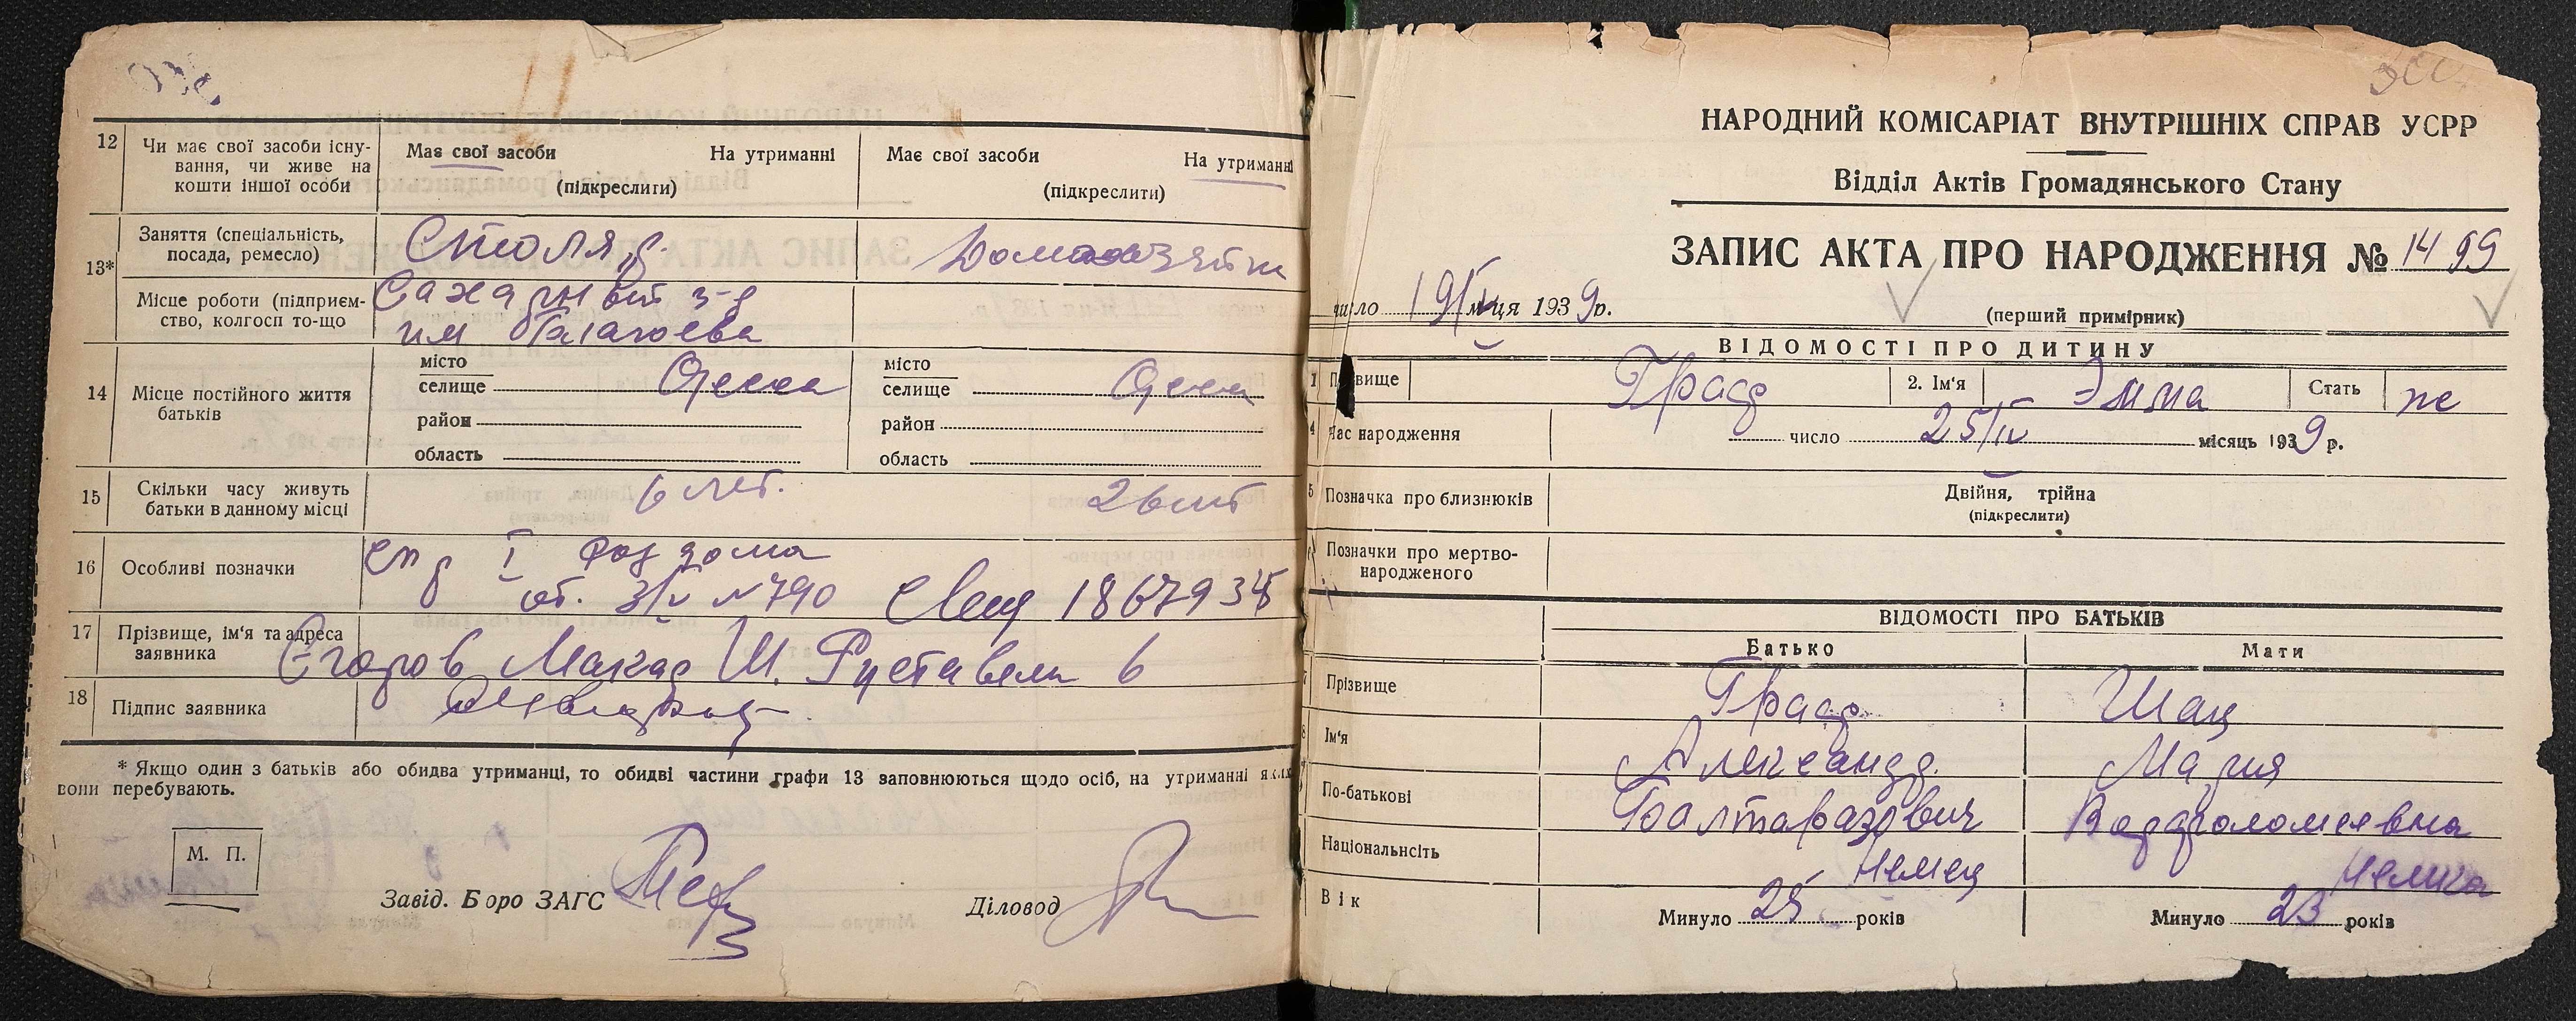 12 Чи має свої засоби існу-
вання, чи живе на
кошти іншої особи
Має свої засоби На утриманні
(підкреслити)
Має свої засоби На утриманні
(підкреслити)
13* Заняття (спеціальність,
посада, ремесло)
Столяр
Домохозяйк
Місце роботи (підприєм-
ство, колгосп то-що
Сахарный з-д
им
14 Місце постійного життя
батьків
місто
селище Одесса
район
область
місто
селище Одесса
район
область
15 Скільки часу живуть
батьки в данному місці
6 лет.
2 лет
16 Особливі позначки
спр I род дома
от. 3/V №790 Свид 1867935
17 Прізвище, ім'я та адреса
заявника
Егоров Макар Ш. Руставели 6
18 Підпис заявника
* Якщо один з батьків або обидва утриманці, то обидві частини графи 13 заповнюються щодо осіб, на утриманні яких
вони перебувають.
М. П.
Завід. Бюро ЗАГС
Діловод
НАРОДНИЙ КОМІСАРІАТ ВНУТРІШНІХ СПРАВ УСРР
Відділ Актів Громадянського Стану
ЗАПИС АКТА ПРО НАРОДЖЕННЯ № 1499
число 19/V м-ця 1939р.
(перший примірник)
ВІДОМОСТІ ПРО ДИТИНУ
1 Прізвище Граф 2. Ім'я Эмма Стать же
4 Час народження число 25/IV місяць 1939 р.
5 Позначка про близнюків
Двійня, трійна
(підкреслити)
Позначки про мертво-
народженого
ВІДОМОСТІ ПРО БАТЬКІВ
Батько Мати
7 Прізвище Граф Шац
8 Ім'я Александр. Мария
По-батькові Балтазарович Варфоломеевна
Національнсіть Немец Немка
Вік
Минуло 25 років Минуло 23 років